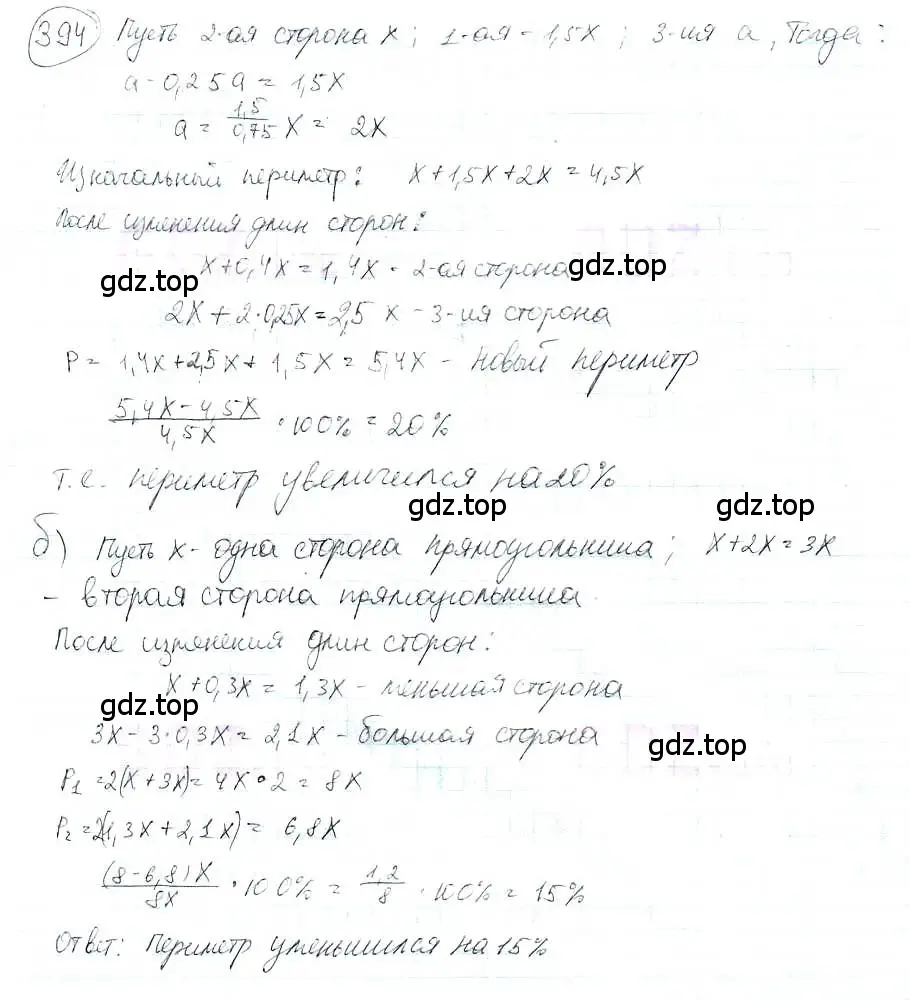 394 Пусть 2-ая сторона x; 1-ая - 1,5x; 3-ия a, Тогда:
a - 0,25a = 1,5x
a = 1,5/0,75 x = 2x
Изначальный периметр: x+1,5x+2x=4,5x
После изменения длин сторон:
x+0,4x=1,4x - 2-ая сторона
gdz.top gdz.top
2x+2·0,25x=2,5 x - 3-ия сторона
P= 1,4x+2,5x+1,5x=5,4x - новый периметр
(5,4x-4,5x)/4,5x · 100% = 20%
т.е. периметр увеличился на 20%
gdz.top gdz.top
б) Пусть x- одна сторона прямоугольника; x+2x=3x
- вторая сторона прямоугольника.
После изменения длин сторон:
x+0,3x=1,3x - меньшая сторона
gdz.top
3x-3·0,3x=2,1x - большая сторона
gdz.top
P₁=2(x+3x)=4x·2=8x
P₂=2(1,3x+2,1x)= 6,8x
(8-6,8)x/8x · 100% = 1,2/8 · 100% = 15%
Ответ: Периметр уменьшился на 15%